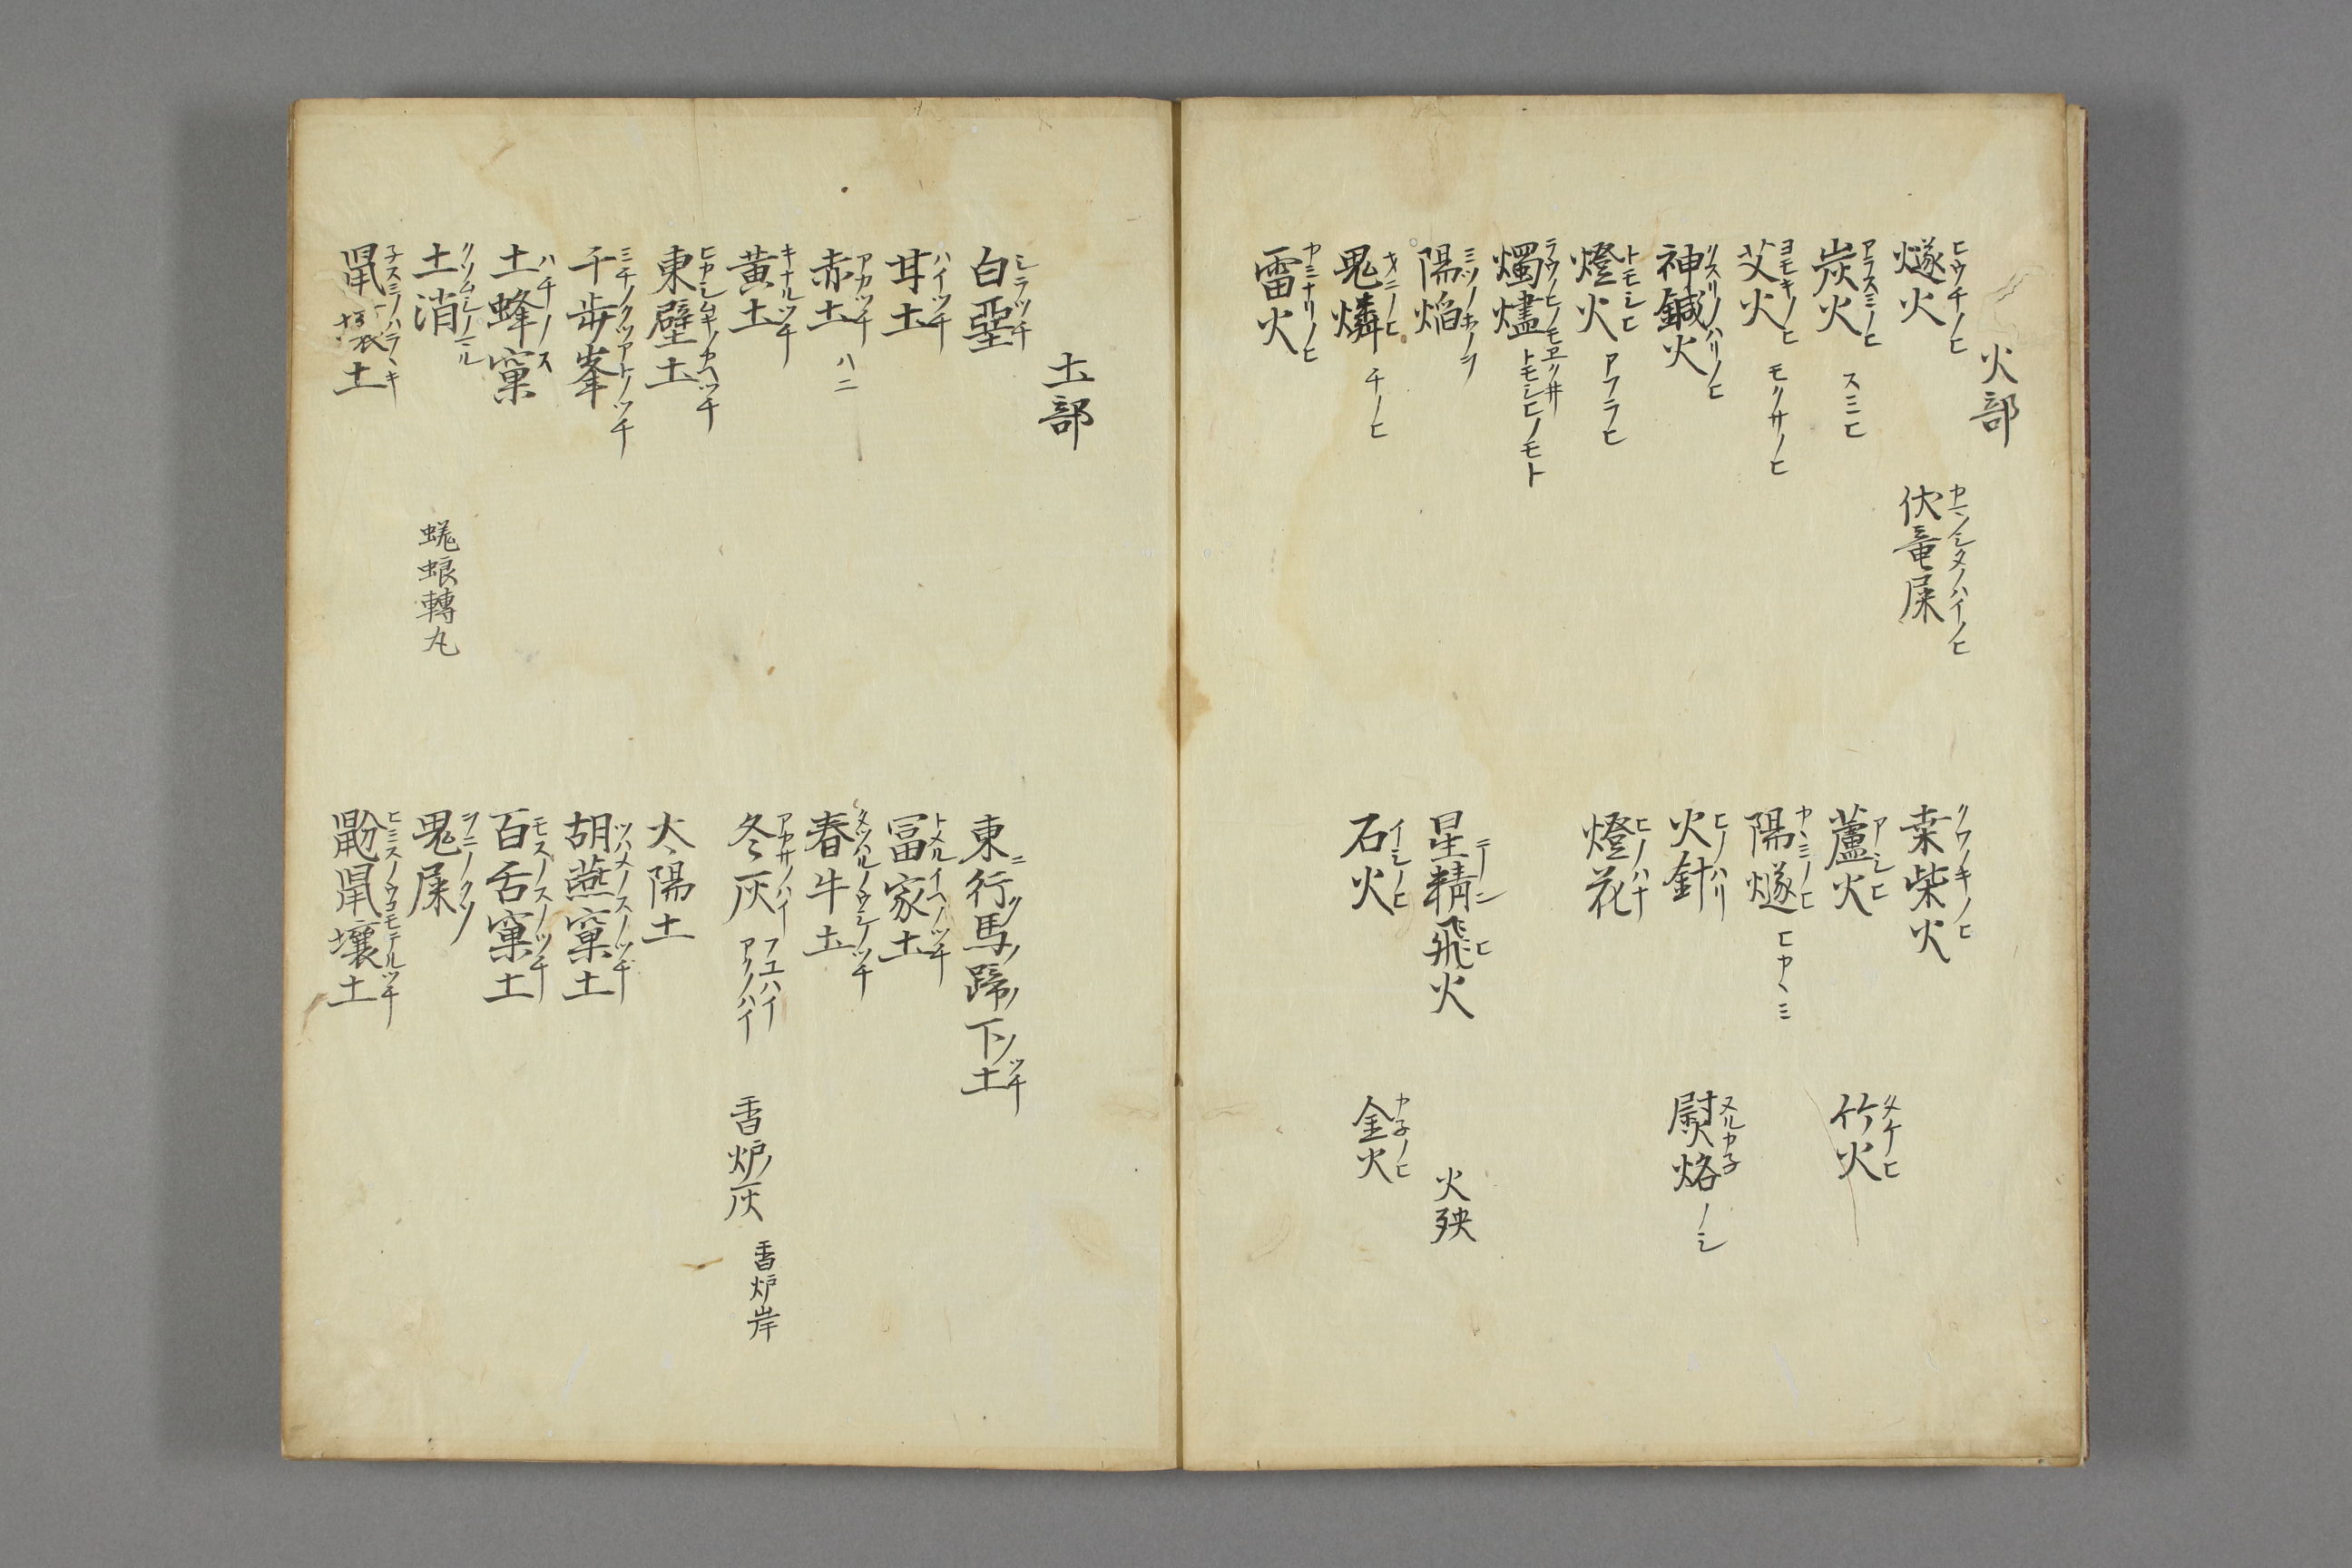 火部
燧火 ヒウチノヒ
伏竜屎 カマノシタノハイノヒ
桒柴火 クワノキノヒ
炭火 アラスミノヒ スミヒ
蘆火 アシヒ
竹火 タケヒ
艾火 ヨモキノヒ モクサノヒ
陽燧 カヽミノヒ ヒカヽミ
神鍼火 クスリノハリノヒ
火針 ヒノハリ
熨烙 ヌルカネノシ
燈火 トモシヒ アフラヒ
燈花 ヒノハナ
燭燼 ラウノヒノモヱクサ トモシヒノモト
陽焰 ミツノホノヲ
星精飛火
火殃
鬼燐 ヲニノヒ チノヒ
石火 イシノヒ
金火 カネノヒ
雷火 カミナリノヒ
土部
白堊 シラツチ
東行馬蹄下土 ニ ク ノ ノ ノツチ
甘土 ハイツチ
冨家土 トメルイヘノツチ
赤土 アカツチ ハニ
春牛土 タツハルノウシノツチ
黄土 キナルツチ
冬灰 アカサノハイ フユハイ アクノハイ
香炉ノ灰
香炉岸
東壁土 ヒカシムキノカヘツチ
太陽土
千歩峯 ミチノクツアトノツチ
胡燕窠土 ツハメノスノツチ
土蜂窠 ハチノス
百舌窠土 モスノスノツチ
土消 クソムシノマル
蜣蜋轉丸
鬼屎 ヲニノクソ
鼠壤土
鼢鼠壤土 ヒミスノウコモテルツチ